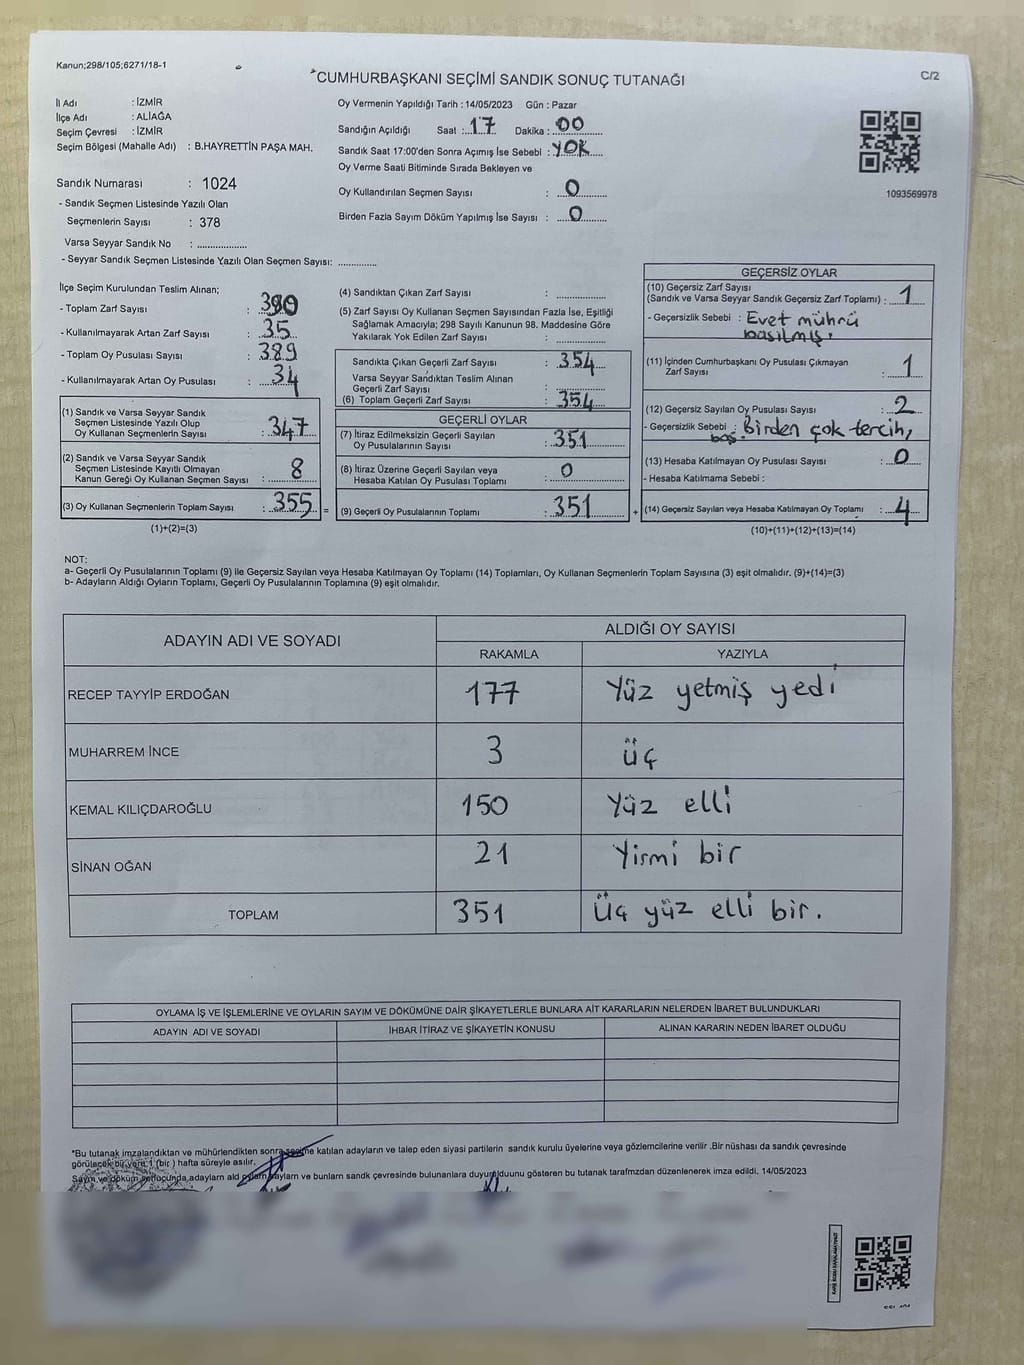 Kanun;298/105;6271/18-1
CUMHURBAŞKANI SEÇİMİ SANDIK SONUÇ TUTANAĞI
C/2
İl Adı : İZMİR
İlçe Adı : ALİAĞA
Seçim Çevresi : İZMİR
Seçim Bölgesi (Mahalle Adı) : B.HAYRETTİN PAŞA MAH.
Sandık Numarası : 1024
- Sandık Seçmen Listesinde Yazılı Olan
Seçmenlerin Sayısı : 378
Varsa Seyyar Sandık No : ..................
- Seyyar Sandık Seçmen Listesinde Yazılı Olan Seçmen Sayısı: .............
Oy Vermenin Yapıldığı Tarih : 14/05/2023 Gün : Pazar
Sandığın Açıldığı Saat : 17 Dakika : 00
Sandık Saat 17:00'den Sonra Açımış İse Sebebi : YOK
Oy Verme Saati Bitiminde Sırada Bekleyen ve
Oy Kullandırılan Seçmen Sayısı : 0
Birden Fazla Sayım Döküm Yapılmış İse Sayısı : 0
1093569978
İlçe Seçim Kurulundan Teslim Alınan;
- Toplam Zarf Sayısı : 390
- Kullanılmayarak Artan Zarf Sayısı : 35
- Toplam Oy Pusulası Sayısı : 389
- Kullanılmayarak Artan Oy Pusulası : 34
(1) Sandık ve Varsa Seyyar Sandık
Seçmen Listesinde Yazılı Olup
Oy Kullanan Seçmenlerin Sayısı : 347
(2) Sandık ve Varsa Seyyar Sandık
Seçmen Listesinde Kayıtlı Olmayan
Kanun Gereği Oy Kullanan Seçmen Sayısı : 8
(3) Oy Kullanan Seçmenlerin Toplam Sayısı : 355 =
(1)+(2)=(3)
(4) Sandıktan Çıkan Zarf Sayısı : ..............
(5) Zarf Sayısı Oy Kullanan Seçmen Sayısından Fazla İse, Eşitliği
Sağlamak Amacıyla; 298 Sayılı Kanunun 98. Maddesine Göre
Yakılarak Yok Edilen Zarf Sayısı : ..............
Sandıkta Çıkan Geçerli Zarf Sayısı : 354
Varsa Seyyar Sandıktan Teslim Alınan
Geçerli Zarf Sayısı : ..............
(6) Toplam Geçerli Zarf Sayısı : 354
GEÇERLİ OYLAR
(7) İtiraz Edilmeksizin Geçerli Sayılan
Oy Pusulalarının Sayısı : 351
(8) İtiraz Üzerine Geçerli Sayılan veya
Hesaba Katılan Oy Pusulası Toplamı : 0
(9) Geçerli Oy Pusulalarının Toplamı : 351 +
GEÇERSİZ OYLAR
(10) Geçersiz Zarf Sayısı
(Sandık ve Varsa Seyyar Sandık Geçersiz Zarf Toplamı) : 1
- Geçersizlik Sebebi : Evet mührü
basılmış.
(11) İçinden Cumhurbaşkanı Oy Pusulası Çıkmayan
Zarf Sayısı : 1
(12) Geçersiz Sayılan Oy Pusulası Sayısı : 2
- Geçersizlik Sebebi : Birden çok tercih,
boş.
(13) Hesaba Katılmayan Oy Pusulası Sayısı : 0
- Hesaba Katılmama Sebebi :
(14) Geçersiz Sayılan veya Hesaba Katılmayan Oy Toplamı : 4
(10)+(11)+(12)+(13)=(14)
NOT:
a- Geçerli Oy Pusulalarının Toplamı (9) ile Geçersiz Sayılan veya Hesaba Katılmayan Oy Toplamı (14) Toplamları, Oy Kullanan Seçmenlerin Toplam Sayısına (3) eşit olmalıdır. (9)+(14)=(3)
b- Adayların Aldığı Oyların Toplamı, Geçerli Oy Pusulalarının Toplamına (9) eşit olmalıdır.
ADAYIN ADI VE SOYADI ALDIĞI OY SAYISI
RAKAMLA YAZIYLA
RECEP TAYYİP ERDOĞAN 177 Yüz yetmiş yedi
MUHARREM İNCE 3 üç
KEMAL KILIÇDAROĞLU 150 Yüz elli
SİNAN OĞAN 21 Yirmi bir
TOPLAM 351 Üç yüz elli bir.
OYLAMA İŞ VE İŞLEMLERİNE VE OYLARIN SAYIM VE DÖKÜMÜNE DAİR ŞİKAYETLERLE BUNLARA AİT KARARLARIN NELERDEN İBARET BULUNDUKLARI
ADAYIN ADI VE SOYADI İHBAR İTİRAZ VE ŞİKAYETİN KONUSU ALINAN KARARIN NEDEN İBARET OLDUĞU
*Bu tutanak imzalandıktan ve mühürlendikten sonra seçime katılan adayların ve talep eden siyasi partilerin sandık kurulu üyelerine veya gözlemcilerine verilir .Bir nüshası da sandık çevresinde
görülecek bir yere 1 (bir ) hafta süreyle asılır.
Sayım ve döküm sonucunda,adayların ald oyların sayıların ve bunlarn sandk çevresinde bulunanlara duyurulduunu gösteren bu tutanak tarafmzdan düzenlenerek imza edildi. 14/05/2023